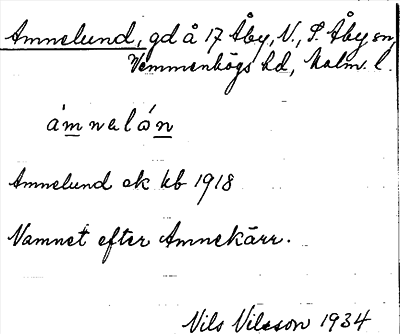 Amnelund, gd å 17 Åby, V, S. Åby sn,
Vemmenhögs hd, Malm. l.
ámnalón
Amnelund ek kb 1918
Namnet efter Amnekärr.
Nils Nilsson 1934